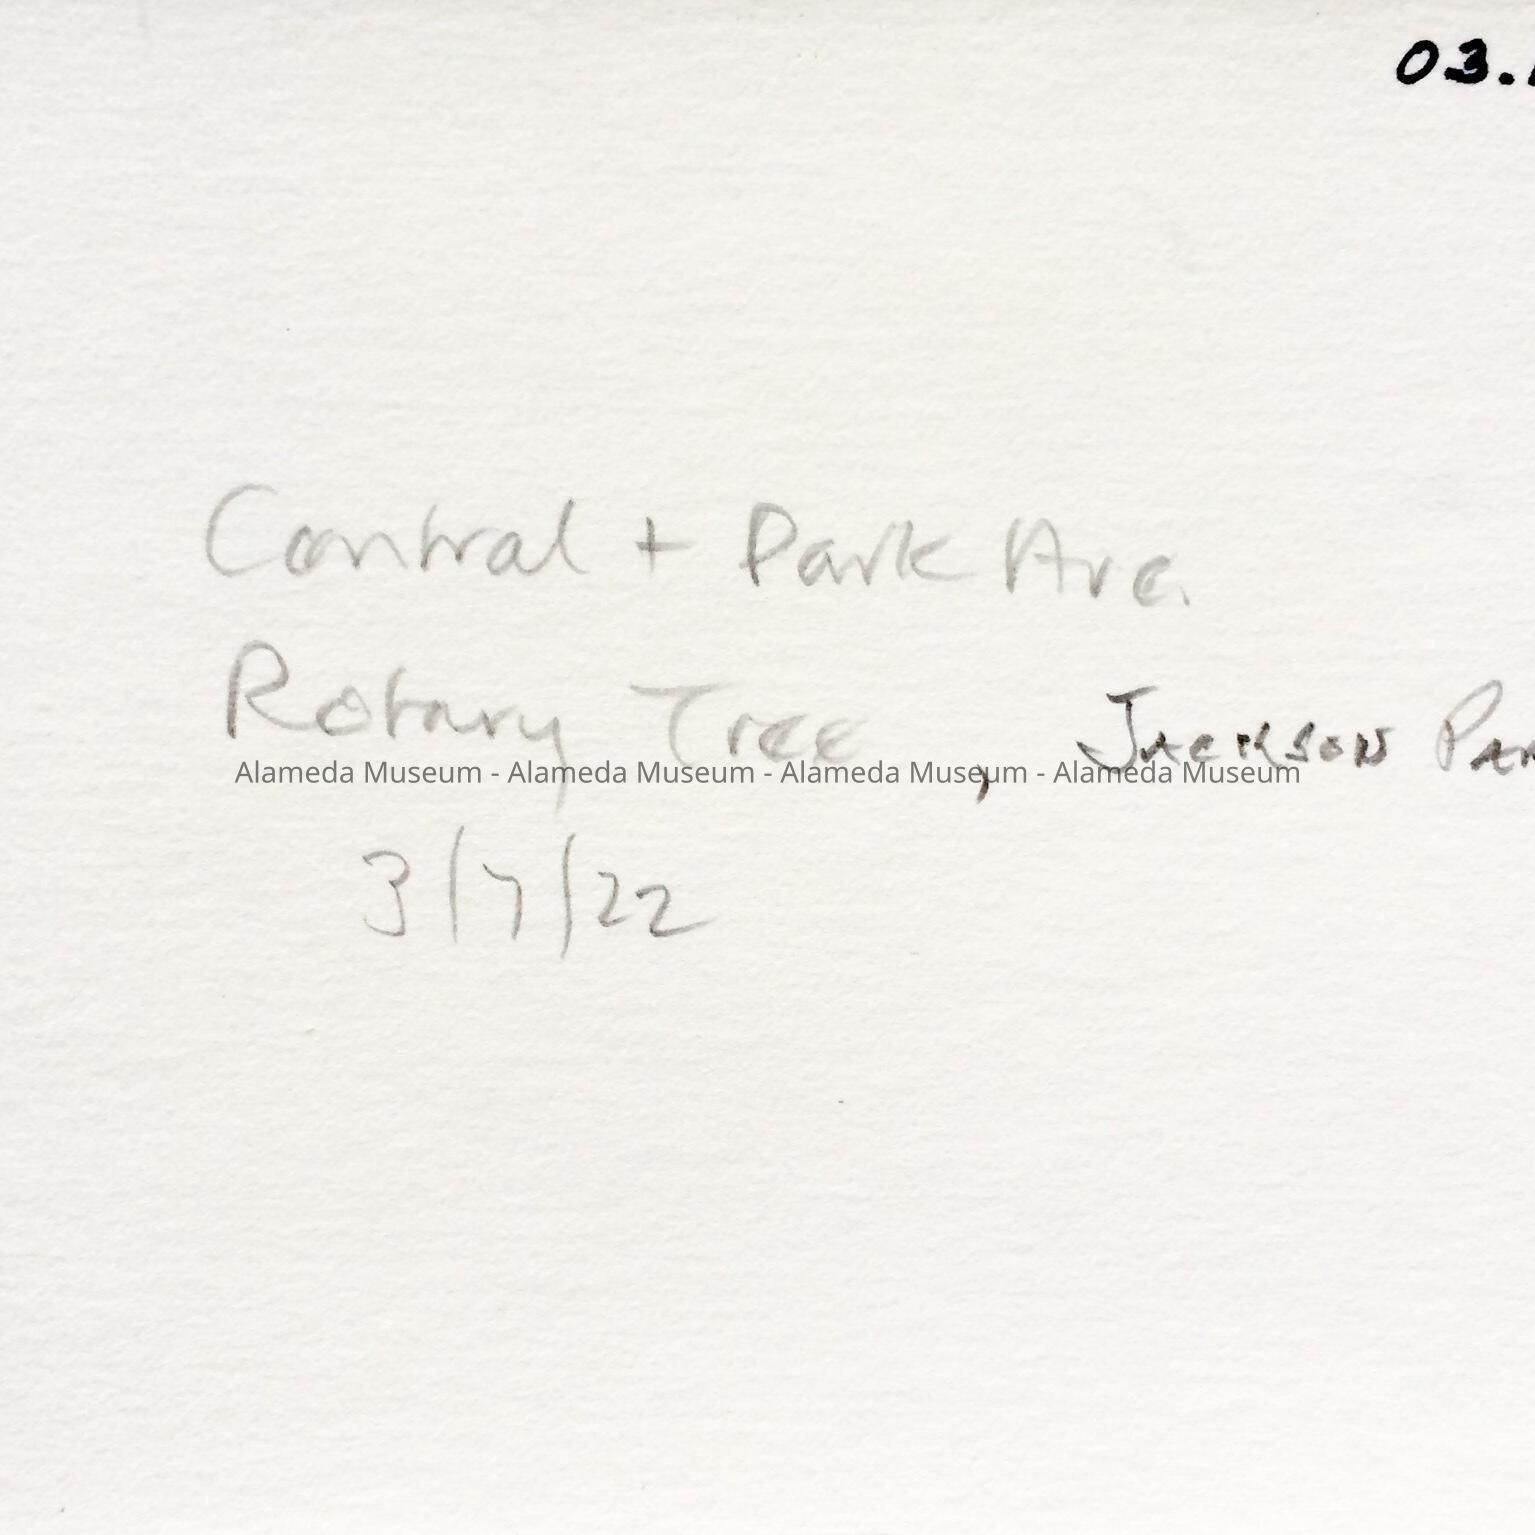 03.
Central + Park Ave.
Rotary Tree, Jackson Par
Alameda Museum - Alameda Museum - Alameda Museum - Alameda Museum
3/7/22